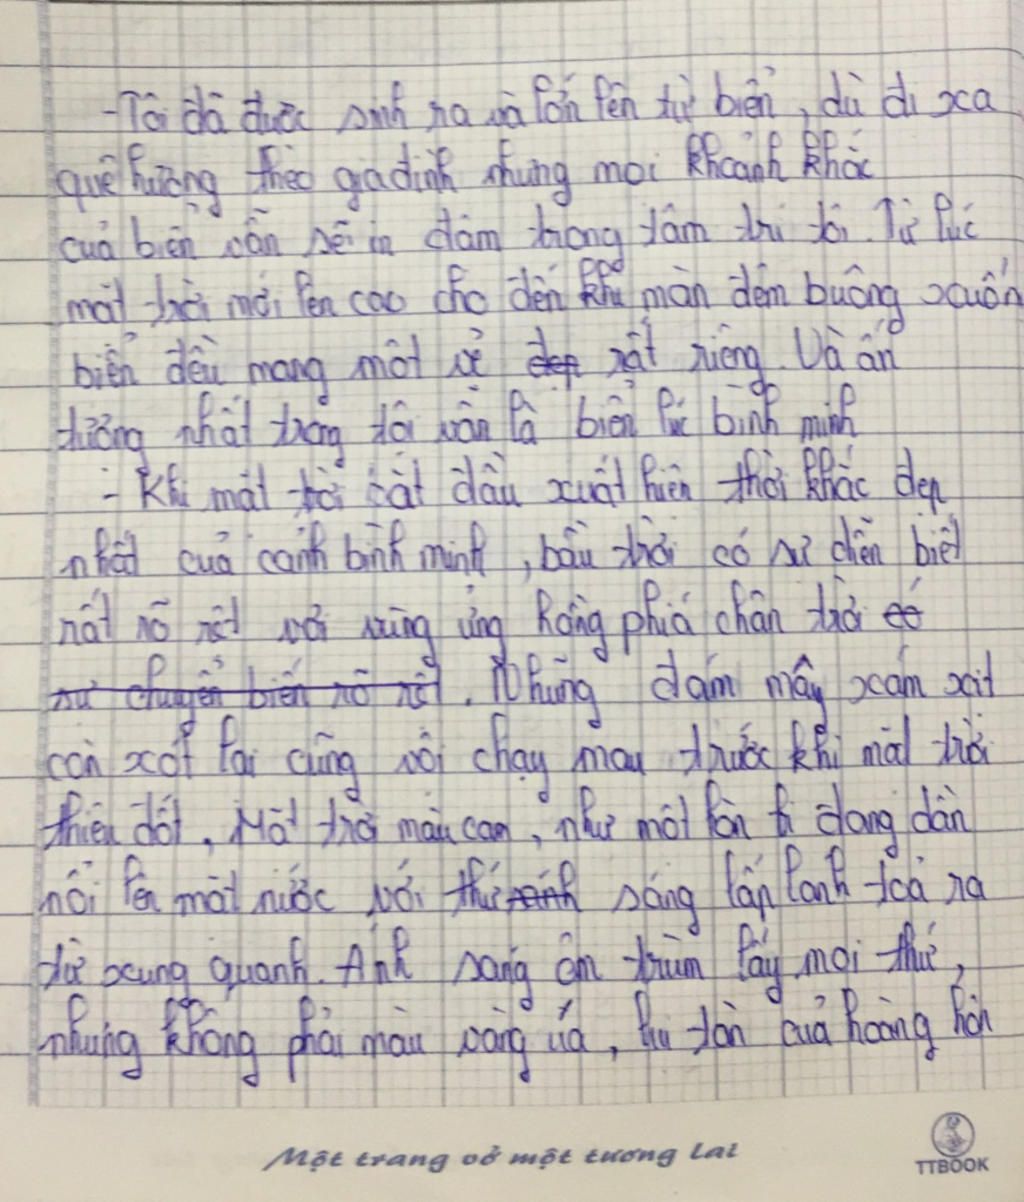 -Tôi đã được sinh ra và lớn lên từ biển, dù đi xa
quê hương theo gia đình nhưng mọi khoảnh khắc
của biển vẫn sẽ in đậm trong tâm trí tôi. Từ lúc
mặt trời mới lên cao cho đến khi màn đêm buông xuốn
biển đều mang một vẻ đẹp rất riêng. Và ấn
tượng nhất trong tôi vẫn là biển lúc bình minh
- Khi mặt trời bắt đầu xuất hiện thời khắc đẹp
nhất của cảnh bình minh, bầu trời có sự diễn biến
rất rõ rệt với vùng ửng hồng phía chân trời có
sự chuyển biến rõ rệt. Những đám mây xám xịt
còn xót lại cũng vội chạy mau trước khi mặt trời
thiêu đốt. Mặt trời màu cam, như một hòn bi đang dần
nổi lên mặt nước với thứ ánh sáng lấp lánh toả ra
từ xung quanh. Ánh sáng ôm trùm lấy mọi thứ,
nhưng không phải màu vàng úa, lụi tàn của hoàng hôn
Một trang vở một tương lai
TTBOOK